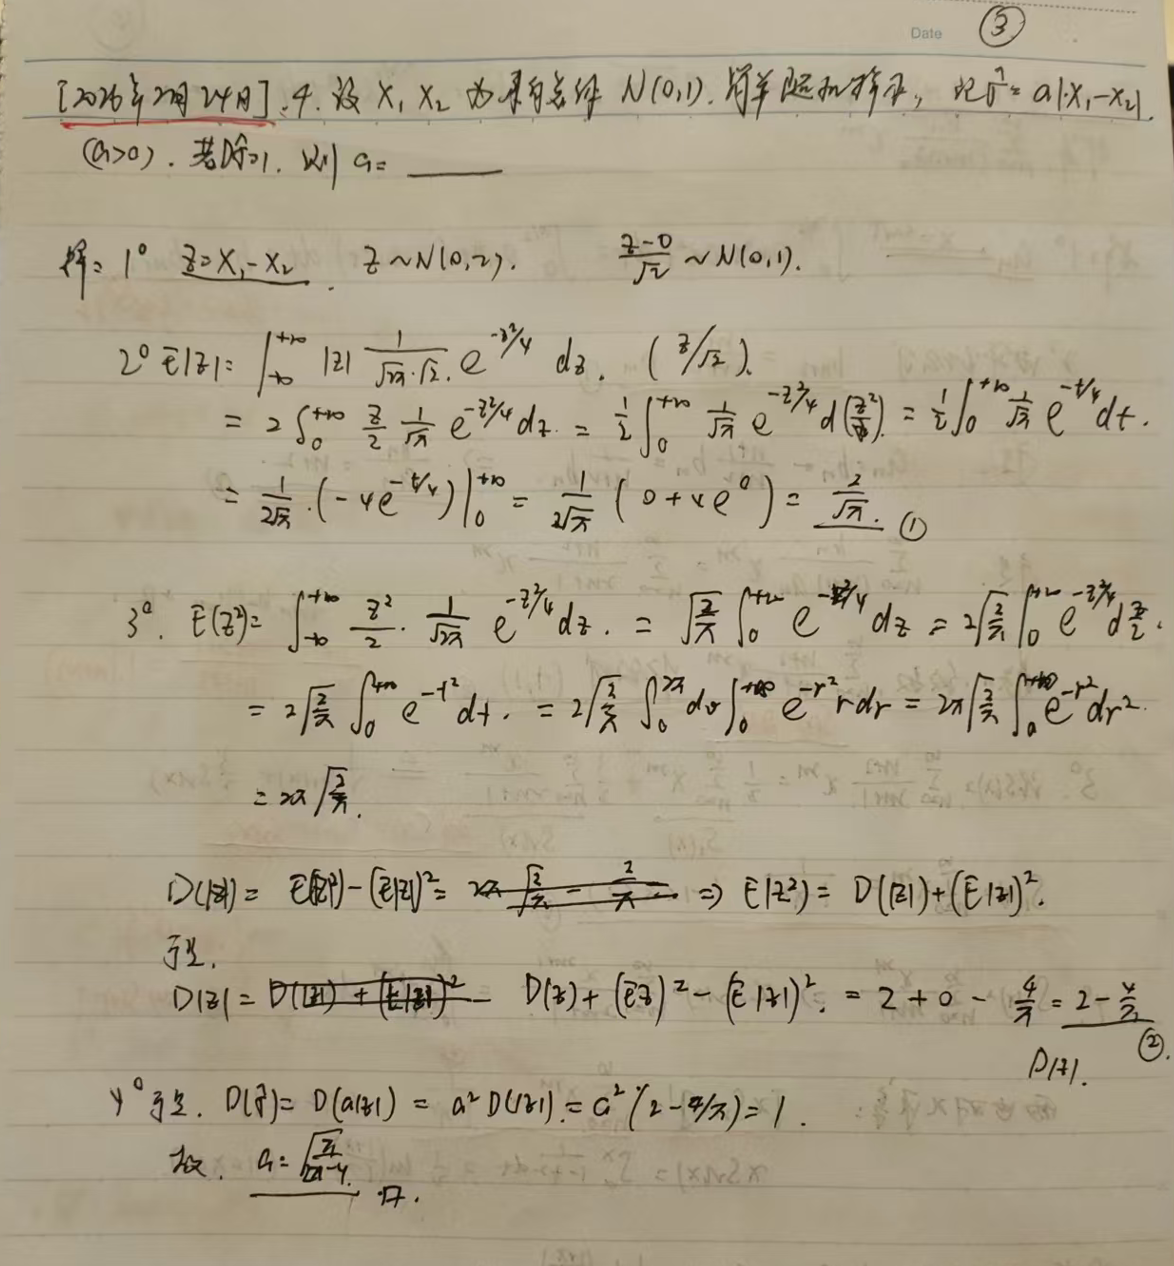 Date ③
[2026年2月24日].4.设 X₁ X₂ 为来自总体 N(0,1).简单随机样本, 记σ̂= a|X₁-X₂|.
(a>0). 若Dσ̂=1. 则 a= ____
解: 1° Z=X₁-X₂. Z~N(0,2). (Z-0)/√2 ~N(0,1).
2° E|Z|= ∫_{-∞}^{+∞} |Z| 1/(√2π·√2) e^{-z²/4} dz. (z/√2).
= 2∫₀^{+∞} z/2 1/√π e^{-z²/4} dz. = 1/2 ∫₀^{+∞} 1/√π e^{-z²/4} d(z²) = 1/2 ∫₀^{+∞} 1/√π e^{-t/4} dt.
= 1/(2√π) ·(-4e^{-t/4})|₀^{+∞} = 1/(2√π) (0+4e⁰) = 2/√π. ①
3°. E(Z²)= ∫_{-∞}^{+∞} z²/2 · 1/√2π e^{-z²/4} dz. = √(2/π) ∫₀^{+∞} e^{-z²/4} dz = 2√(2/π) ∫₀^{+∞} e^{-z²/4} d z/2.
= 2√(2/π) ∫₀^{+∞} e^{-t²} dt. = 2√(2/π) ∫₀^{2π} dθ ∫₀^{+∞} e^{-r²} r dr = 2π√(2/π) ∫₀^{+∞} e^{-r²} dr².
= 2π √(2/π).
D(|Z|)= E(|Z|²)-(E|Z|)²= ⇒ E|Z²)= D(|Z|)+(E|Z|)².
于是,
D|Z|= D(Z)+(EZ)²-(E|Z|)². = 2+0- 4/π = 2-4/π ②.
D|Z|.
4° 于是. D(σ̂)= D(a|Z|) = a² D(|Z|).= a² (2-4/π)=1.
故. a=√(π/(2π-4)). □.